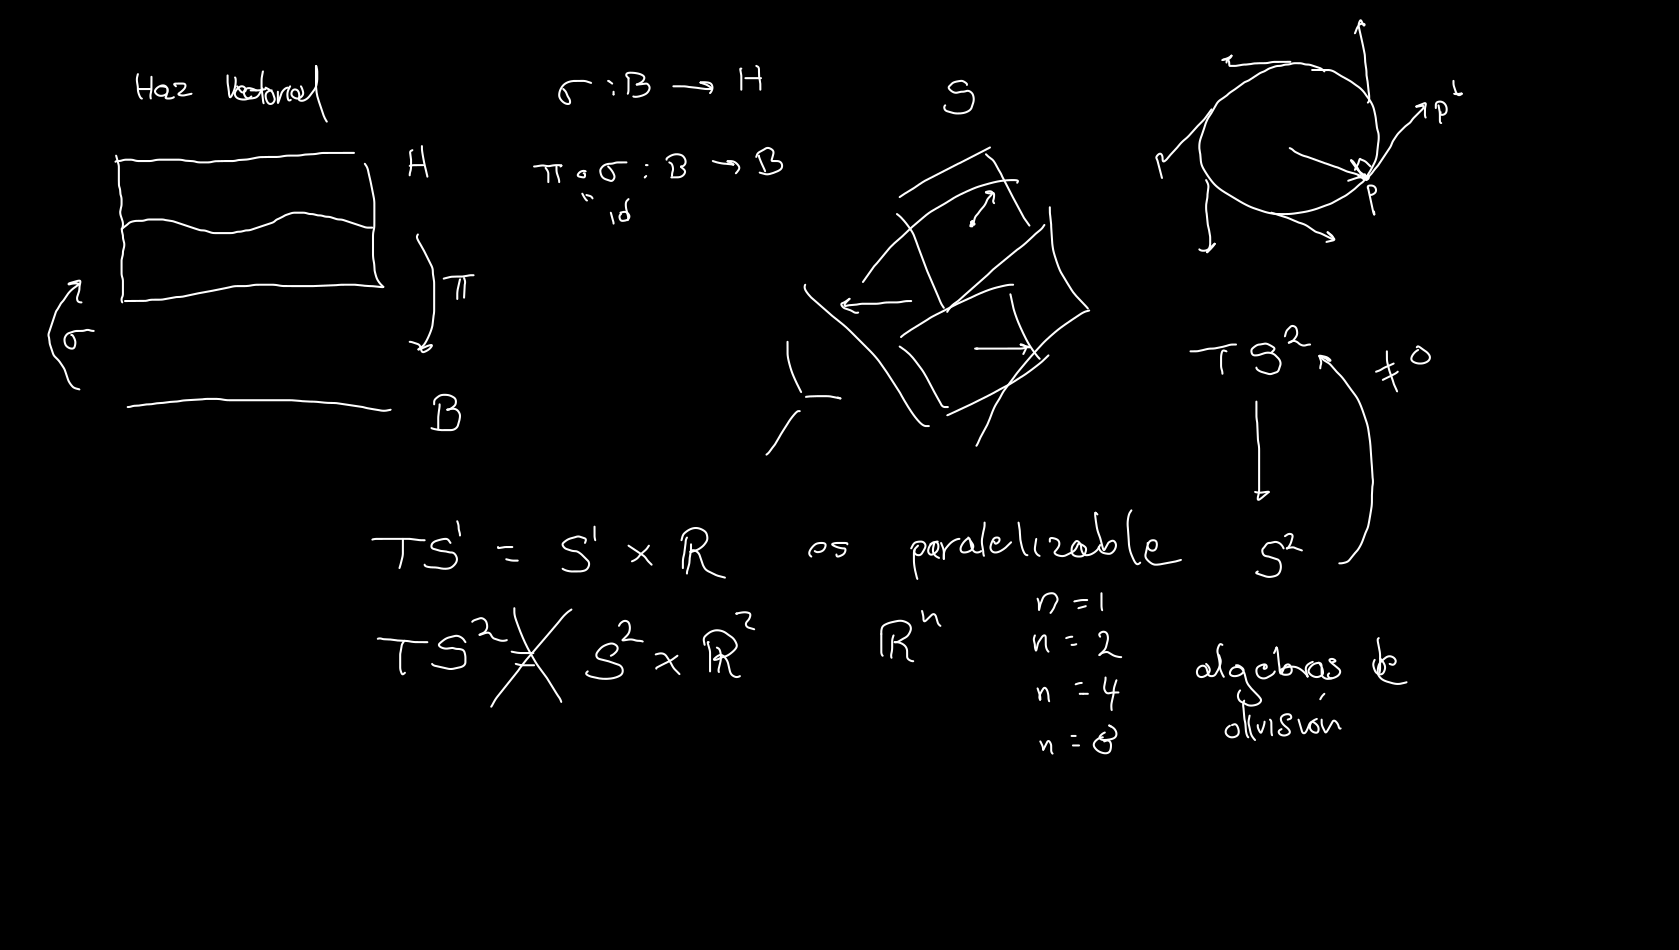 Haz Vectorial
H
π
σ
B
σ : B → H
π ∘ σ : B → B
" id
S
p^⊥
p
TS² ≠ 0
S²
TS¹ = S¹ × R es paralelizable
TS² = S² × R²
Rⁿ
n = 1
n = 2
n = 4
n = 8
algebras de
división